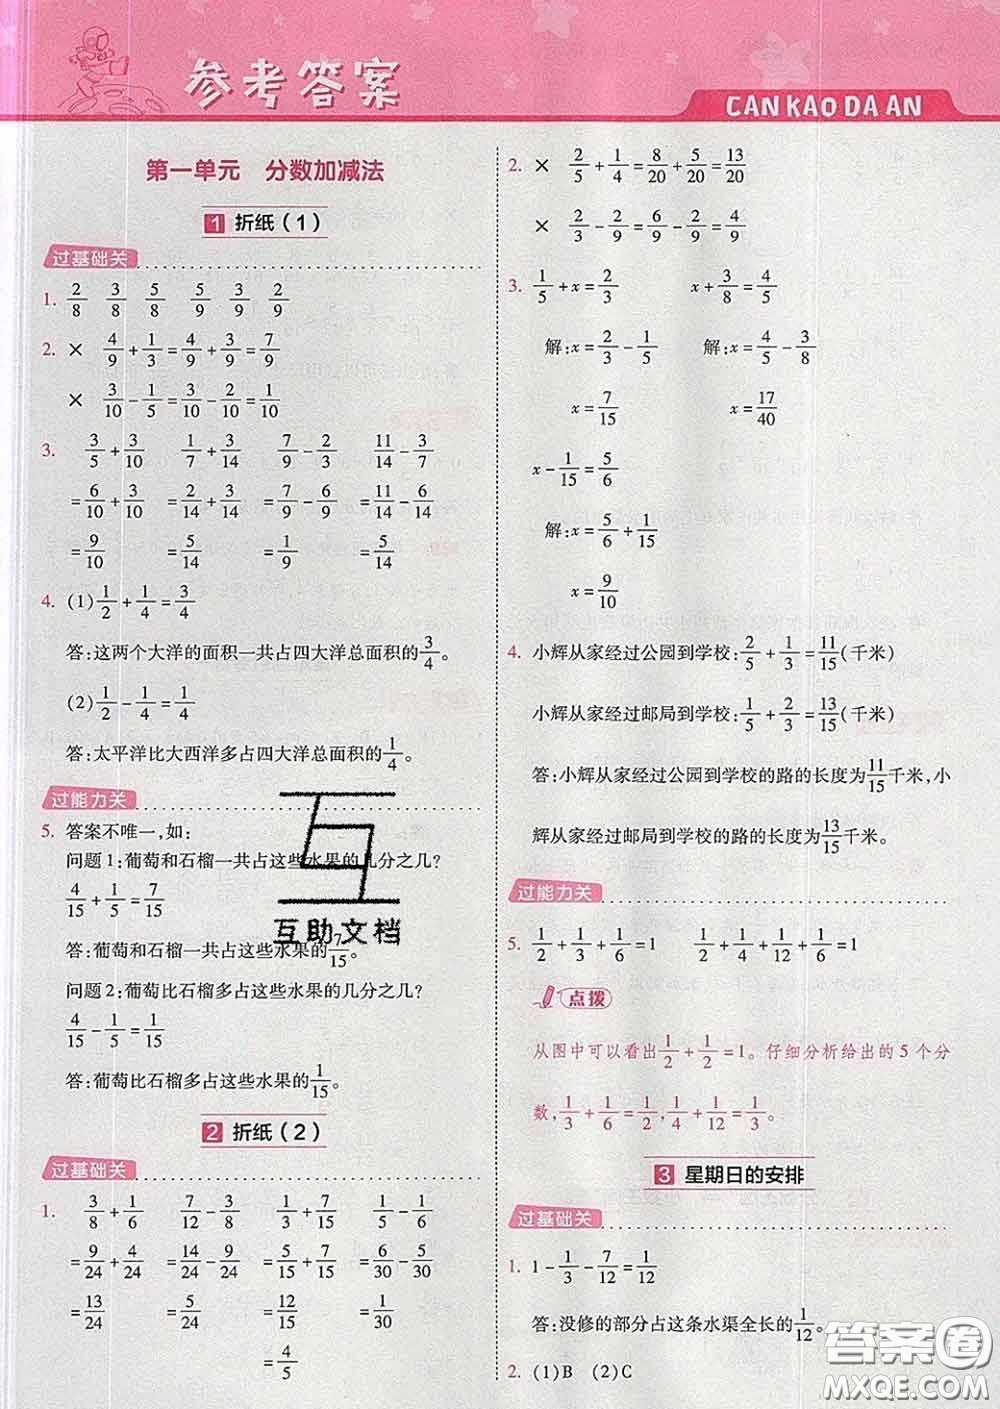 参考答案
CAN KAO DA AN
第一单元 分数加减法
1 折纸(1)
过基础关
1. 2/8 3/8 5/8 5/9 3/9 2/9
2. × 4/9+1/3=4/9+3/9=7/9
× 3/10-1/5=3/10-2/10=1/10
3. 3/5+3/10 1/7+3/14 7/9-2/3 11/14-3/7
=6/10+3/10 =2/14+3/14 =7/9-6/9 =11/14-6/14
=9/10 =5/14 =1/9 =5/14
4. (1)1/2+1/4=3/4
答:这两个大洋的面积一共占四大洋总面积的3/4。
(2)1/2-1/4=1/4
答:太平洋比大西洋多占四大洋总面积的1/4。
过能力关
5. 答案不唯一,如:
问题1:葡萄和石榴一共占这些水果的几分之几?
4/15+1/5=7/15
答:葡萄和石榴一共占这些水果的7/15。
问题2:葡萄比石榴多占这些水果的几分之几?
4/15-1/5=1/15
答:葡萄比石榴多占这些水果的1/15。
2 折纸(2)
过基础关
1. 3/8+1/6 7/12-3/8 1/3+7/15 1/5-1/6
=9/24+4/24 =14/24-9/24 =5/15+7/15 =6/30-5/30
=13/24 =5/24 =12/15 =1/30
=4/5
2. × 2/5+1/4=8/20+5/20=13/20
× 2/3-2/9=6/9-2/9=4/9
3. 1/5+x=2/3 x+3/8=4/5
解:x=2/3-1/5 解:x=4/5-3/8
x=7/15 x=17/40
x-1/15=5/6
解:x=5/6+1/15
x=9/10
4. 小辉从家经过公园到学校:2/5+1/3=11/15(千米)
小辉从家经过邮局到学校:1/5+2/3=13/15(千米)
答:小辉从家经过公园到学校的路的长度为11/15千米,小
辉从家经过邮局到学校的路的长度为13/15千米。
过能力关
5. 1/2+1/3+1/6=1 1/4+1/12+1/2+1/6=1
点拨
从图中可以看出1/2+1/2=1。仔细分析给出的5个分
数,1/3+1/6=1/2,1/4+1/12+1/6=1/2。
3 星期日的安排
过基础关
1. 1-1/3-7/12=1/12
答:没修的部分占这条水渠全长的1/12。
2. (1)B (2)C
互助文档
答案圈
MXQE.COM